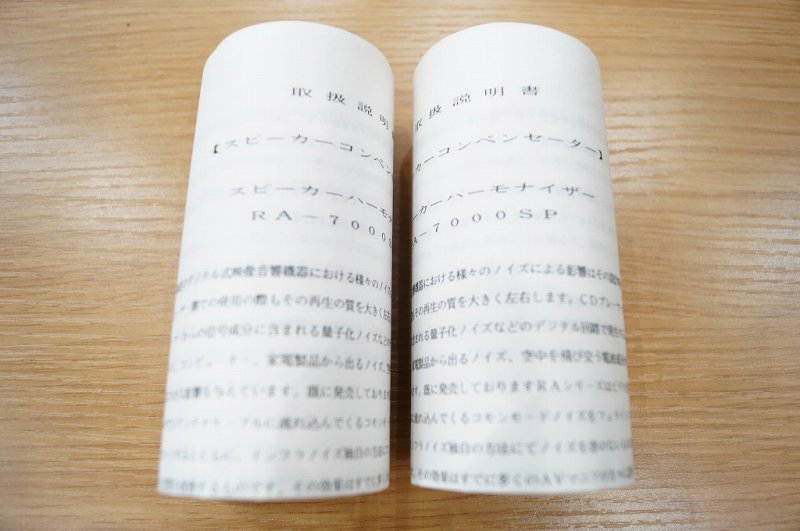 取扱説明
【スピーカーコンペン
スピーカーハーモ
RA-7000S
デジタル式映像音響機器における様々のノイズ
での使用の際もその再生の質を大きく
からの信号成分に含まれる量子化ノイズなど
コンピューター、家電製品から出るノイズ、
影響を与えています。既に発売しておりま
アンテナケーブルに流れ込んでくるコモンモー
とともに、インフラノイズ独自の
するものです。その効果はすでに
取扱説明書
カーコンペンセーター】
ーカーハーモナイザー
A-7000SP
響機器における様々のノイズによる影響はその
その再生の質を大きく左右します。CDプレーヤ
含まれる量子化ノイズなどのデジタル回路で発生
家電製品から出るノイズ、空中を飛び交う電
す。既に発売しておりますRAシリーズは
流れ込んでくるコモンモードノイズをフェ
ンフラノイズ独自の方法にてノイズを
その効果はすでに多くのAVマニア